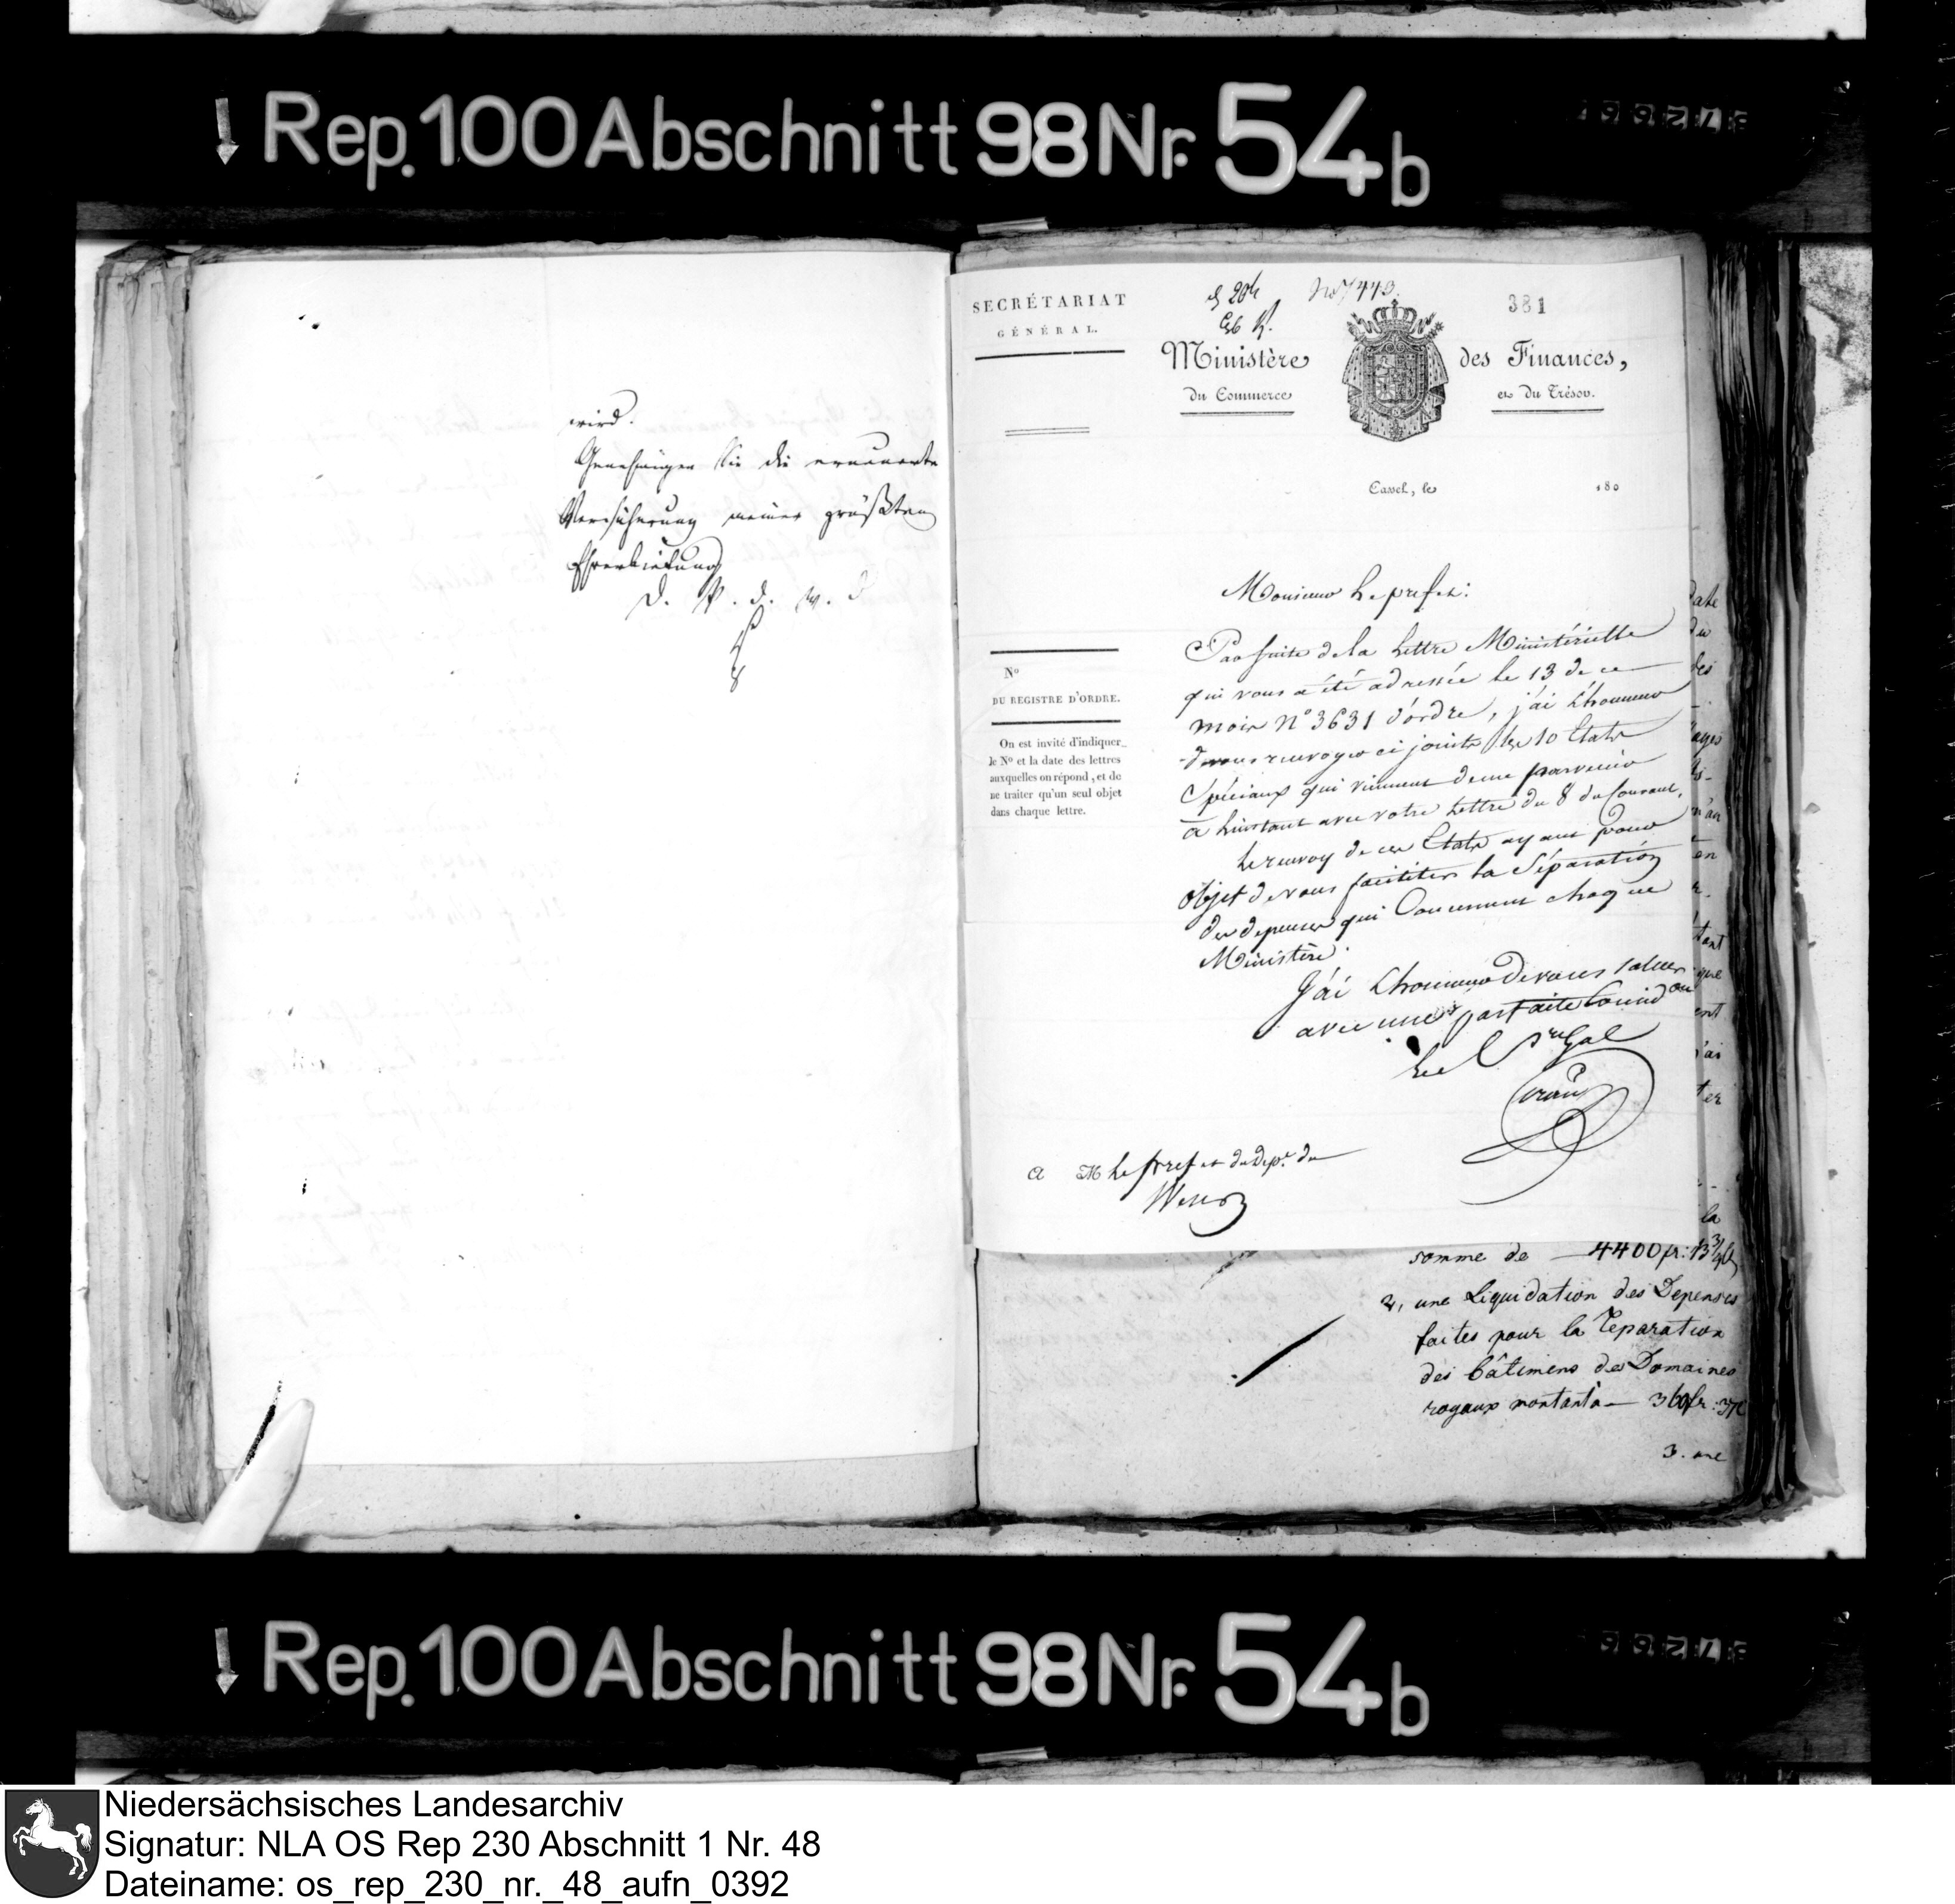 Rep. 100 Abschnitt 98 Nr. 54b
wird.
Genehmigen Sie die erneuerte
Versicherung meiner größten
Ehrerbietung
D. P. d. W. D
SECRÉTARIAT
GÉNÉRAL.
No 7443.
381
Ministère des Finances,
du Commerce et du Trésor.
Cassel, le 180
Monsieur Le prefet:
Par suite de la Lettre Ministérielle
qui vous a été adressée le 13 de ce
mois n° 3631 d'ordre, j'ai L'honneur
de vous renvoyer ci joints les 10 Etats
Spéciaux qui viennent de me parvenir
a L'instant avec votre Lettre du 8 du Courant,
Le renvoy de ces Etats ayant pour
objet de vous faciliter la Séparation
des depenses qui Concernent chaque
Ministère.
J'ai L'honneur de vous saluer
avec une parfaite Considon
Le Sre Gal
N°
DU REGISTRE D'ORDRE.
On est invité d'indiquer
le N° et la date des lettres
auxquelles on répond, et de
ne traiter qu'un seul objet
dans chaque lettre.
a M Le Prefet du Dept. du
Weser
la
somme de — 4400 fr:
2, une Liquidation des Depenses
faites pour la reparation
des bâtimens des Domaines
royaux montant à — 360 fr.
3. une
Rep. 100 Abschnitt 98 Nr. 54b
Niedersächsisches Landesarchiv
Signatur: NLA OS Rep 230 Abschnitt 1 Nr. 48
Dateiname: os_rep_230_nr._48_aufn_0392